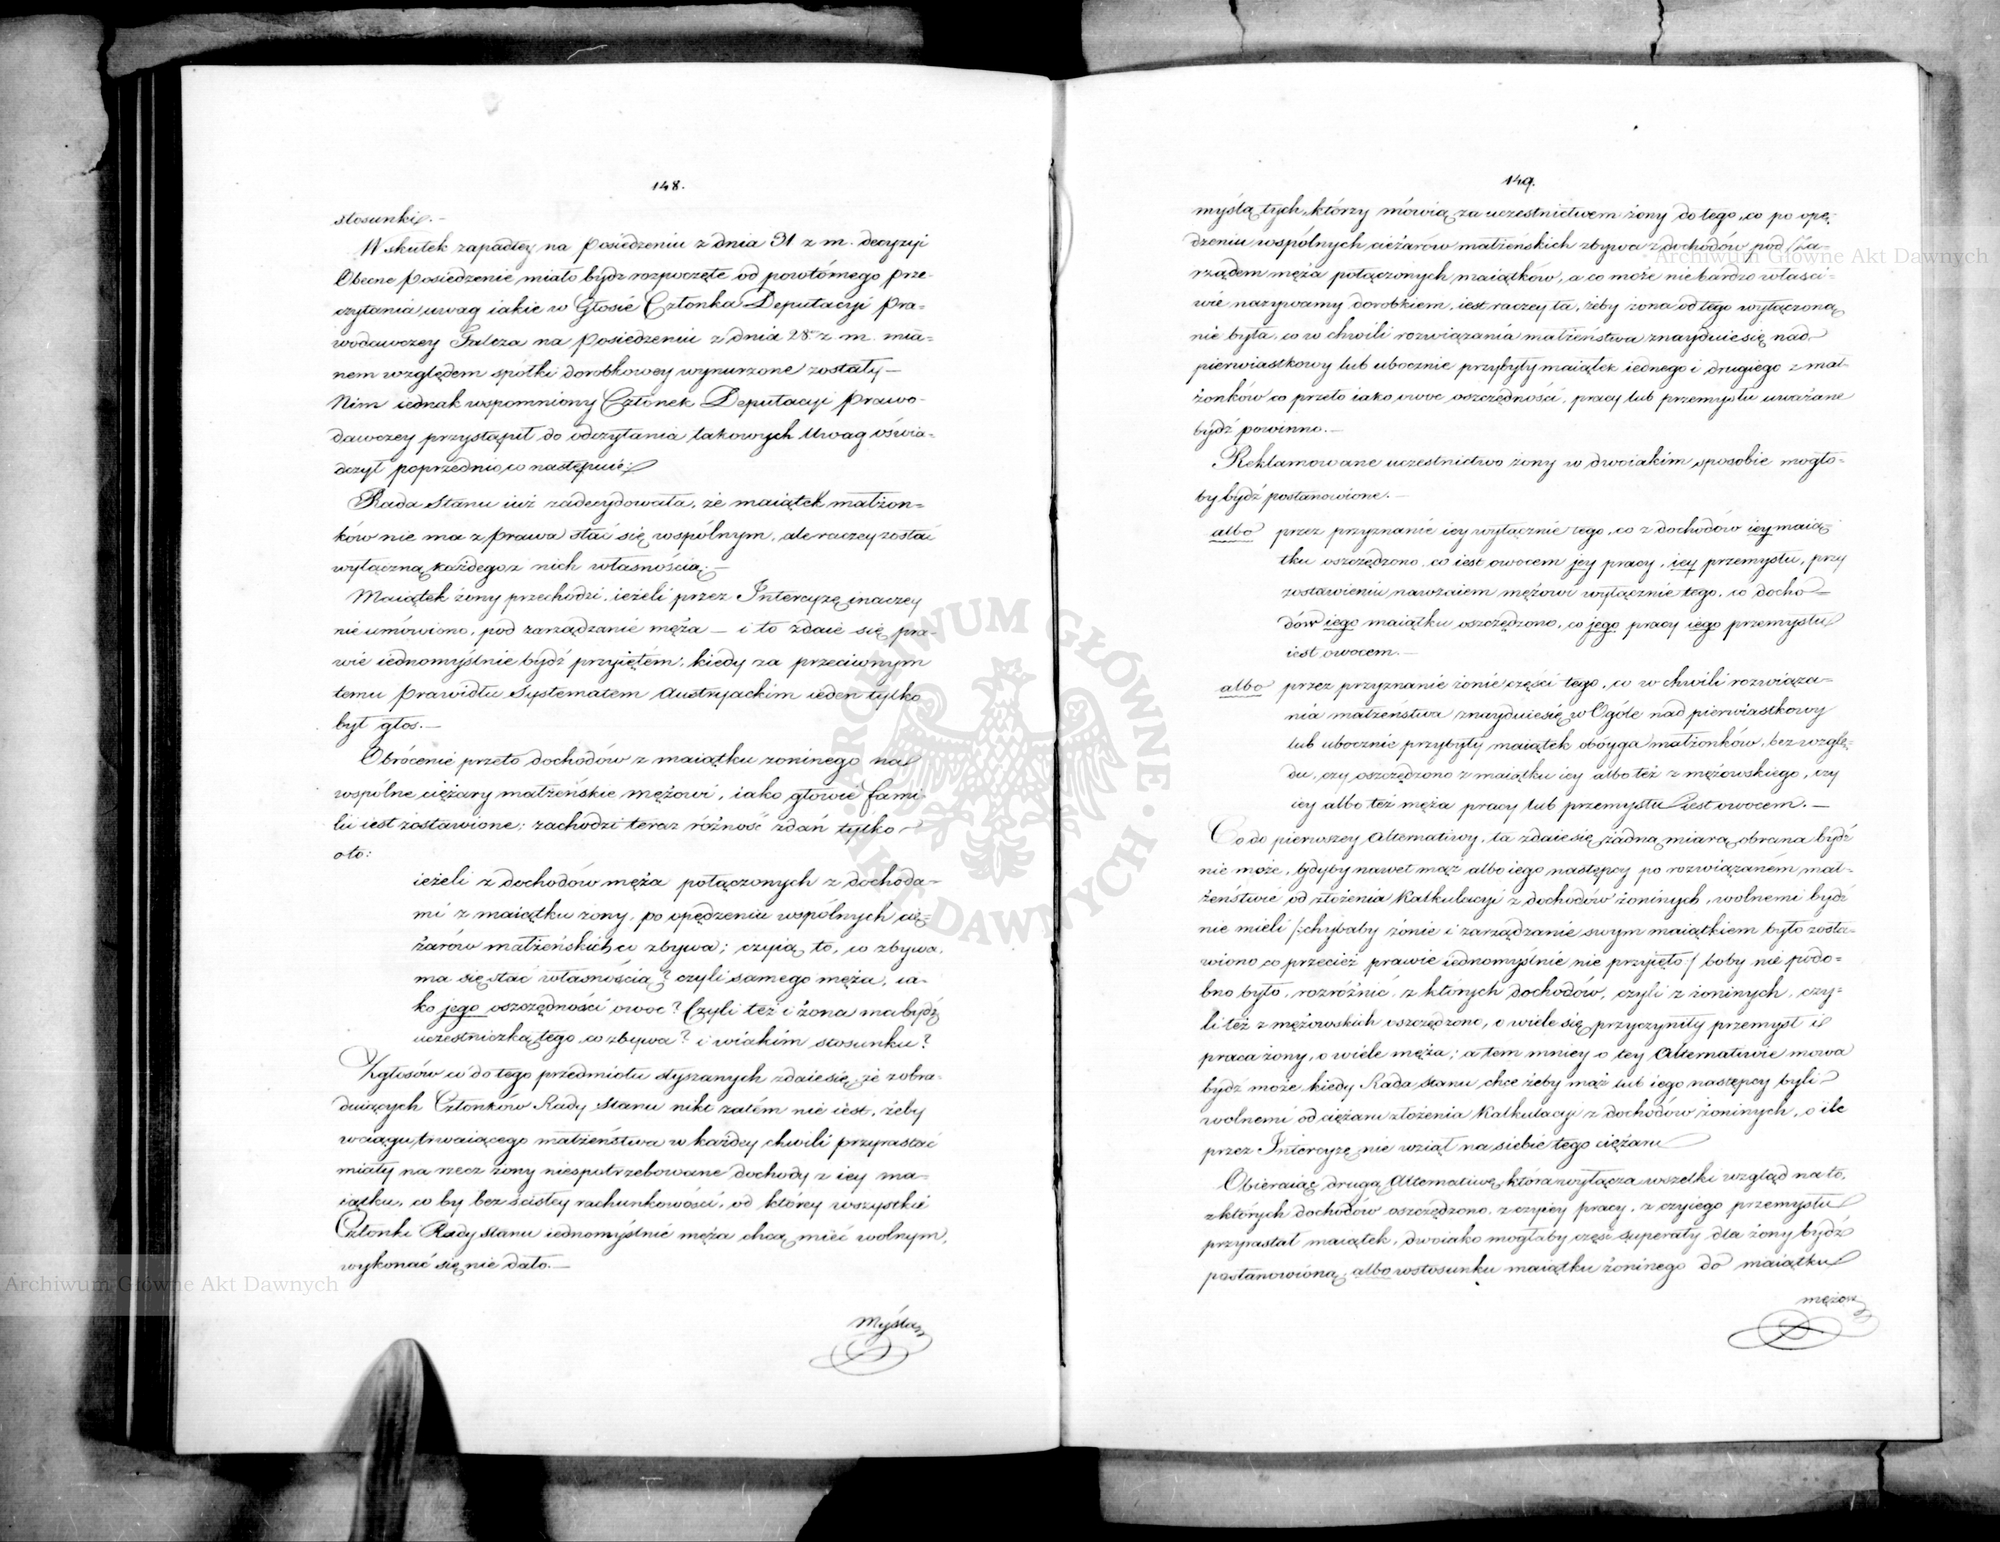 148.
stosunki. –
W skutek zapadłey na Posiedzeniu z dnia 31 z. m. decyzyi
Obecne Posiedzenie miało bydź rozpoczęte od powtórnego prze-
czytania uwag iakie w Głosie Członka Deputacyi Pra-
wodawczey Faleza na Posiedzeniu z dnia 28 z. m. mia-
nem względem spółki dorobkowey wynurzone zostały –
Nim iednak wspomniony Członek Deputacyi Prawo-
dawczey przystąpił do odczytania takowych Uwag oświa-
dczył poprzednio, co następuie:
Rada Stanu iuż zadecydowała, że maiątek małżon-
ków nie ma z prawa stać się wspólnym, ale raczey zostać
wyłączną każdego z nich własnością. –
Maiątek żony przechodzi, ieżeli przez Intercyzę inaczey
nie umówiono, pod zarządzanie męża – i to zdaie się pra-
wie iednomyślnie bydź przyiętém; kiedy za przeciwnym
temu prawidłu Systematem Austryackim ieden tylko
był głos. –
Obrócenie przeto dochodów z maiątku żoninego na
wspólne ciężary małżeńskie mężowi, iako głowie fami-
lii iest zostawione; zachodzi teraz różność zdań tylko
o to:
ieżeli z dochodów męża połączonych z dochoda-
mi z maiątku żony, po opędzeniu wspólnych cię-
żarów małżeńskich co zbywa; czyią to, co zbywa,
ma się stać własnością? czyli samego męża, ia-
ko jego oszczędności owoc? Czyli też i żona ma bydź
uczestniczką tego co zbywa? i w iakim stosunku?
Z głosów co do tego przedmiotu słyszanych zdaie się, że z obra-
duiących Członków Rady Stanu nikt zatém nie iest, żeby
w ciągu trwaiącego małżeństwa w każdey chwili przyrastać
miały na rzecz żony niespotrzebowane dochody z iey ma-
iątku, co by bez ścisłey rachunkowości, od którey wszystkie
Członki Rady Stanu iednomyślnie męża chcą mieć wolnym,
wykonać się nie dało. –
Myślą
149.
myślą tych, którzy mówią za uczestnictwem żony do tego, co po opę-
dzeniu wspólnych ciężarów małżeńskich zbywa z dochodów pod za-
rządem męża połączonych maiątków, a co może nie bardzo właści-
wie nazywamy dorobkiem, iest raczey ta, żeby żona od tego wyłączoną
nie była, co w chwili rozwiązania małżeństwa znayduie się nad
pierwiastkowy lub ubocznie przybyły maiątek iednego i drugiego z mał-
żonków co przeto iako owoc oszczędności, pracy lub przemysłu uważane
bydź powinno. –
Reklamowane uczestnictwo żony w dwoiakim sposobie mogło-
by bydź postanowione. –
albo przez przyznanie iey wyłącznie tego, co z dochodów iey maią-
tku oszczędzono, co iest owocem jey pracy, iey przemysłu, przy
zostawieniu nawzaiem mężowi wyłącznie tego, co docho-
dów iego maiątku oszczędzono, co jego pracy iego przemysłu
iest owocem. –
albo przez przyznanie żonie części tego, co w chwili rozwiąza-
nia małżeństwa znayduie się w Ogóle nad pierwiastkowy
lub ubocznie przybyły maiątek obóyga małżonków, bez wzglę-
du, czy oszczędzono z maiątku iey albo też z mężowskiego, czy
iey albo też męża pracy lub przemysłu iest owocem. –
Co do pierwszey Alternatiwy, ta zdaie się żadną miarą obrana bydź
nie może, gdyby nawet mąż albo iego następcy po rozwiązaném mał-
żeństwie od złożenia Kalkulacyi z dochodów żoninych, wolnemi bydź
nie mieli /: chybaby żonie i zarządzanie swym maiątkiem było zosta-
wiono, co przecież prawie iednomyślnie nie przyięto / boby nie podo-
bno było, rozróżnić, z których dochodów, czyli z żoninych, czy-
li też z mężowskich oszczędzono, o wiele się przyczyniły przemysł i
praca żony, o wiele męża; a tem mniey o tey Alternatiwie mowa
bydź może kiedy Rada Stanu chce żeby mąż lub iego następcy byli
wolnemi od ciężaru złożenia Kalkulacyi z dochodów żoninych, o ile
przez Intercyzę nie wziął na siebie tego ciężaru
Obieraiąc drugą Alternatiwę, która wyłącza wszelki wzgląd na to,
z których dochodów oszczędzono, z czyiey pracy, z czyiego przemysłu
przyrastał maiątek, dwoiako mogłaby część superaty dla żony bydź
postanowioną, albo w stosunku maiątku żoninego do maiątku
mężow
ARCHIWUM GŁÓWNE AKT DAWNYCH
Archiwum Główne Akt Dawnych
Archiwum Główne Akt Dawnych